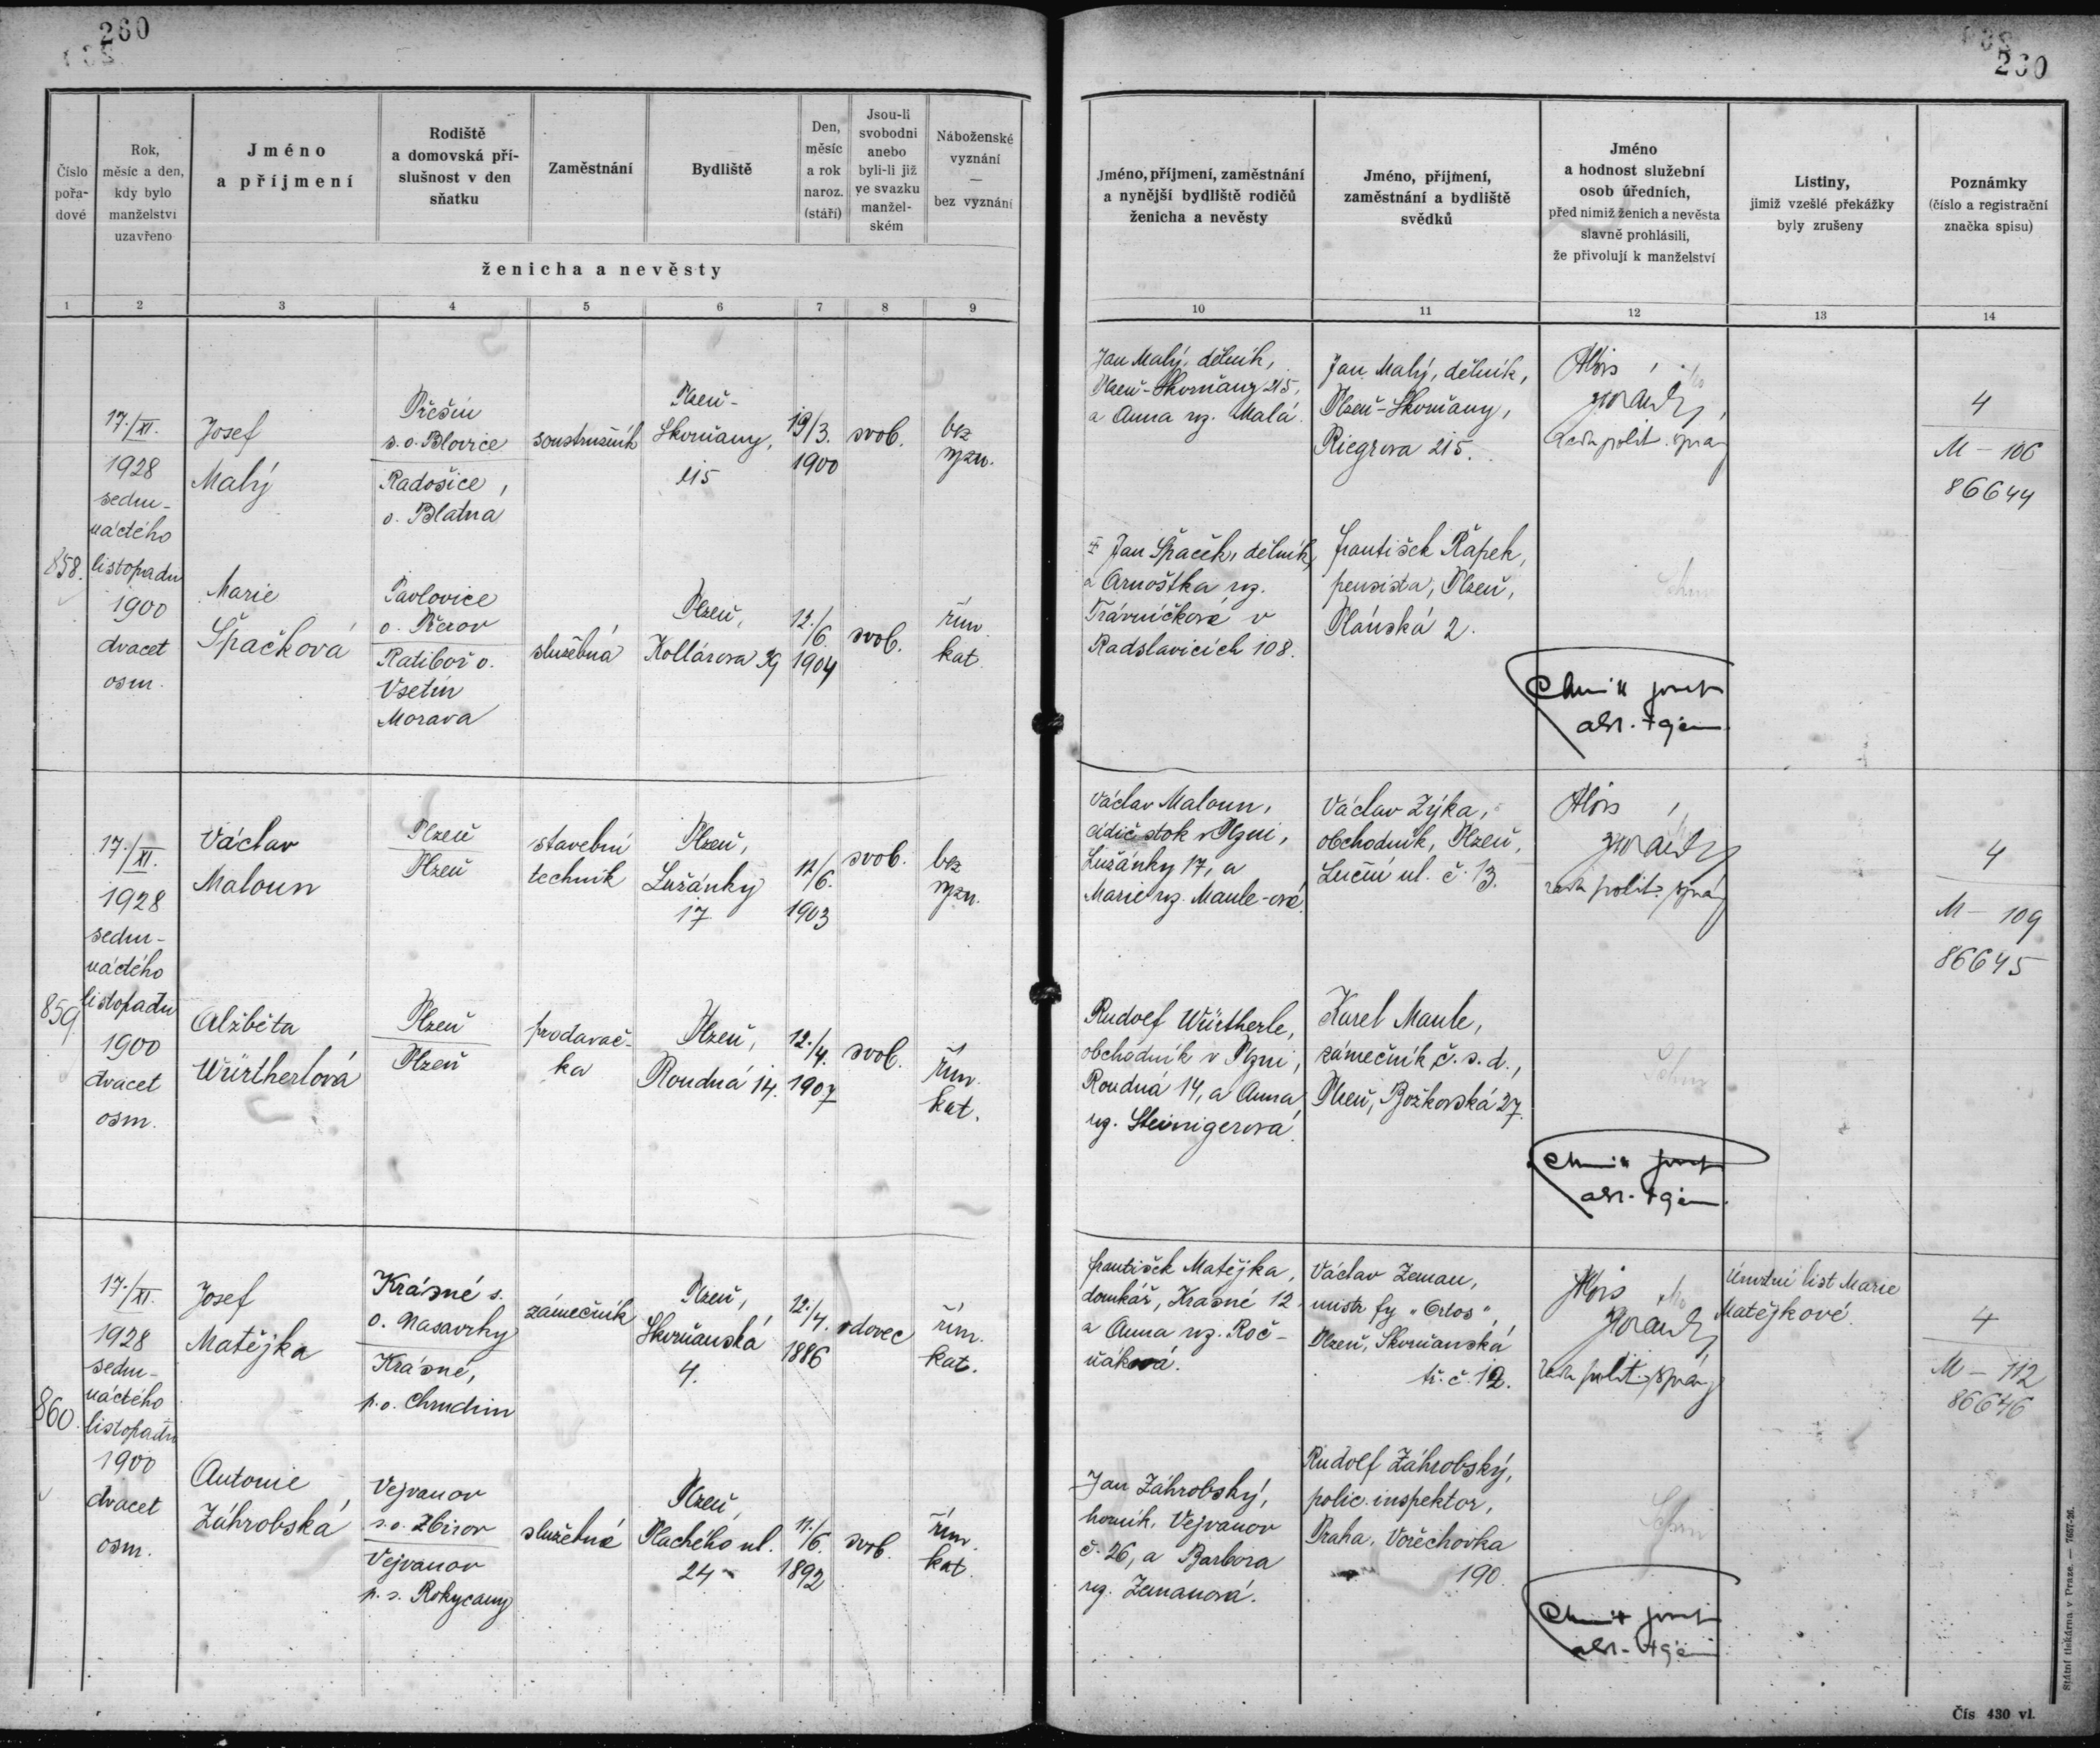 260
260
Číslo
pořa-
dové
Rok,
měsíc a den,
kdy bylo
manželství
uzavřeno
Jméno
a příjmení
Rodiště
a domovská pří-
slušnost v den
sňatku
Zaměstnání
Bydliště
Den,
měsíc
a rok
naroz.
(stáří)
Jsou-li
svobodni
anebo
byli-li již
ve svazku
manžel-
ském
Náboženské
vyznání
—
bez vyznání
ženicha a nevěsty
1 2 3 4 5 6 7 8 9
Jméno, příjmení, zaměstnání
a nynější bydliště rodičů
ženicha a nevěsty
Jméno, příjmení,
zaměstnání a bydliště
svědků
Jméno
a hodnost služební
osob úředních,
před nimiž ženich a nevěsta
slavně prohlásili,
že přivolují k manželství
Listiny,
jimiž vzešlé překážky
byly zrušeny
Poznámky
(číslo a registrační
značka spisu)
10 11 12 13 14
858.
17./XI.
1928
sedm-
náctého
listopadu
1900
dvacet
osm.
Josef
Malý
Přešín
s. o. Blovice
Radošice,
o. Blatná
soustružník
Plzeň-
Skvrňany,
215
19/3.
1900
svob.
bez
vyzn.
Jan Malý, dělník,
Plzeň-Skvrňany 215,
a Anna roz. Malá.
Jan Malý, dělník,
Plzeň-Skvrňany,
Riegrova 215.
Alois
rada polit. správy
4
M – 106
86644
Marie
Špačková
Pavlovice
o. Přerov
Ratiboř o.
Vsetín
Morava
služebná
Plzeň,
Kollárova 29
12./6.
1904
svob.
řím.
kat.
Jan Špaček, dělník,
a Arnoštka roz.
Trávníčkové v
Radslavicích 108.
František Řápek,
pensista, Plzeň,
Plánská 2.
859.
17./XI.
1928
sedm-
náctého
listopadu
1900
dvacet
osm.
Václav
Maloun
Plzeň
Plzeň
stavební
technik
Plzeň,
Lužánky
17
17/6.
1903
svob.
bez
vyzn.
Václav Maloun,
čidič stok v Plzni,
Lužánky 17, a
Marie roz. Maule-ové.
Václav Zýka,
obchodník, Plzeň,
Luční ul. č. 13.
Alois
rada polit. správy
4
M – 109
86645
Alžběta
Würtherlová
Plzeň
Plzeň
prodavač-
ka
Plzeň,
Roudná 14.
12./4.
1907
svob.
řím.
kat.
Rudolf Würtherle,
obchodník v Plzni,
Roudná 14, a Anna
roz. Steinigerová.
Karel Maule,
zámečník č. s. d.,
Plzeň, Božkovská 27.
860.
17./XI.
1928
sedm-
náctého
listopadu
1900
dvacet
osm.
Josef
Matějka
Krásné s.
o. Nasavrky
Krásné,
p. o. Chrudim
zámečník
Plzeň,
Skvrňanská
4.
12./4.
1886
vdovec
řím.
kat.
František Matějka,
domkář, Krásné 12
a Anna roz. Roč-
ňáková.
Václav Zeman,
mistr fy „Orlos",
Plzeň, Skvrňanská
tř. č. 12.
Alois
rada polit. správy
Úmrtní list Marie
Matějkové.
4
M – 112
86646
Antonie
Záhrobská
Vejvanov
s. o. Zbirov
Vejvanov
p. s. Rokycany
služebná
Plzeň,
Plachého ul.
24
11./6.
1892
svob.
řím.
kat.
Jan Záhrobský,
horník, Vejvanov
č. 26, a Barbora
roz. Zemanová.
Rudolf Záhrobský,
polic. inspektor,
Praha, Vořechovka
190.
Státní tiskárna v Praze. — 7657-26.
Čís 430 vl.